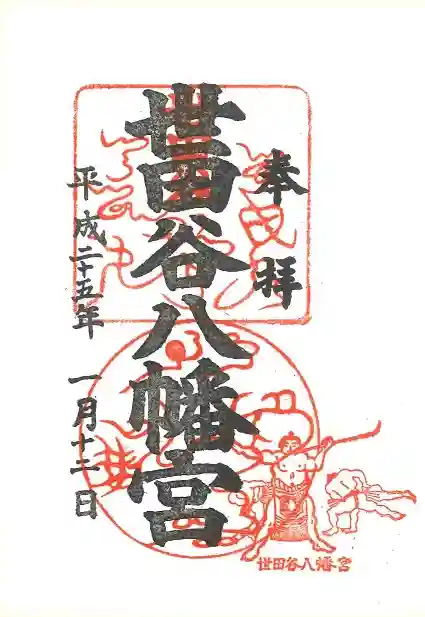 奉拝
世田谷八幡宮
平成二十五年 一月十二日
世田谷八幡宮